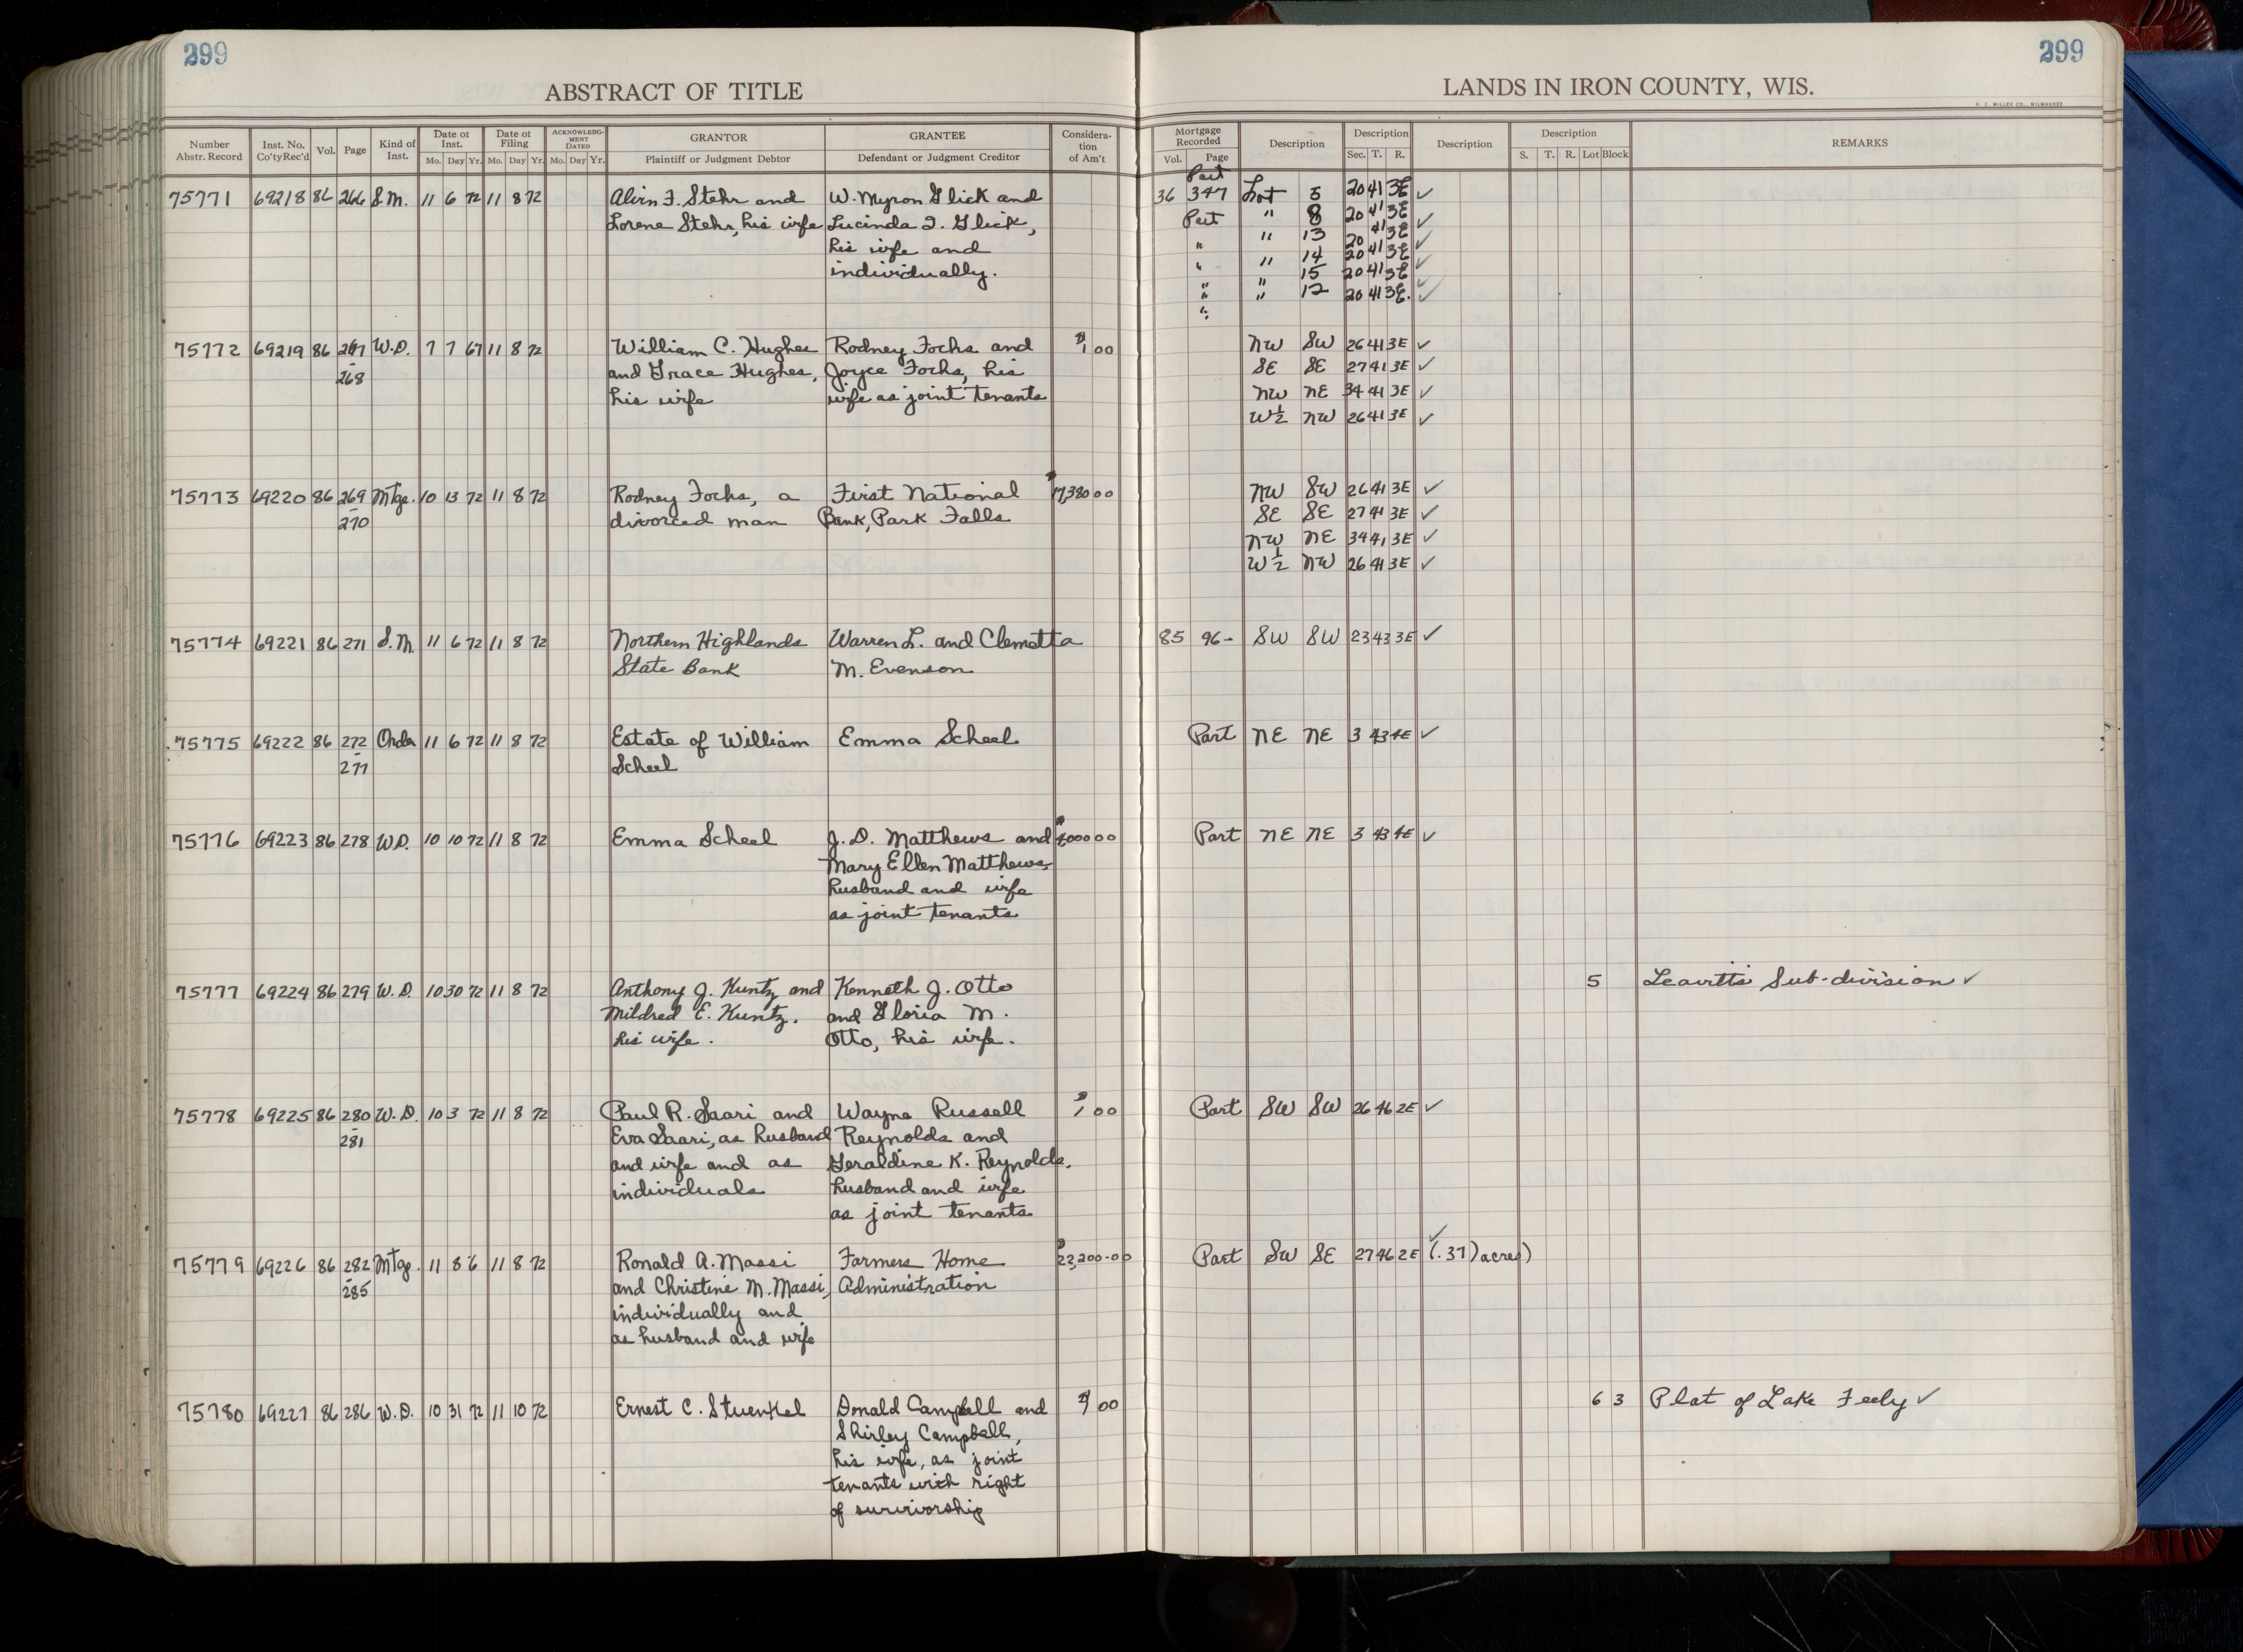 299
299
ABSTRACT OF TITLE
LANDS IN IRON COUNTY, WIS.
H. C. MILLER CO., MILWAUKEE
Number Abstr. Record
Inst. No. Co'ty Rec'd
Vol.
Page
Kind of Inst.
Date of Inst.
Mo. Day Yr.
Date of Filing
Mo. Day Yr.
ACKNOWLEDGMENT DATED
Mo. Day Yr.
GRANTOR
Plaintiff or Judgment Debtor
GRANTEE
Defendant or Judgment Creditor
Consideration of Am't
Mortgage Recorded
Vol. Page
Description
Description
Sec. T. R.
Description
Description
S. T. R. Lot Block
REMARKS
Part
75771 69218 86 266 S.M. 11 6 72 11 8 72 Alvin F. Stehr and W. Myron Glick and 36 347 Lot 5 20 41 3E ✓
Lorene Stehr, his wife Lucinda I. Glick, Part " 8 20 41 3E ✓
his wife and " " 13 20 41 3E ✓
individually. " " 14 20 41 3E ✓
" " 15 20 41 3E ✓
" " 12 20 41 3E. ✓
75772 69219 86 267 W.D. 7 7 67 11 8 72 William C. Hughes Rodney Fochs and $1 00 NW SW 26 41 3E ✓
- 268 and Grace Hughes, Joyce Fochs, his SE SE 27 41 3E ✓
his wife wife as joint tenants NW NE 34 41 3E ✓
W½ NW 26 41 3E ✓
75773 69220 86 269 Mtge. 10 13 72 11 8 72 Rodney Fochs, a First National $17,380 00 NW SW 26 41 3E ✓
- 270 divorced man Bank, Park Falls SE SE 27 41 3E ✓
NW NE 34 41 3E ✓
W½ NW 26 41 3E ✓
75774 69221 86 271 S.M. 11 6 72 11 8 72 Northern Highlands Warren L. and Clemetta 85 96- SW SW 23 43 3E ✓
State Bank M. Evenson
75775 69222 86 272 Order 11 6 72 11 8 72 Estate of William Emma Scheel Part NE NE 3 43 4E ✓
- 277 Scheel
75776 69223 86 278 W.D. 10 10 72 11 8 72 Emma Scheel J. D. Matthews and 000 00 Part NE NE 3 43 4E ✓
Mary Ellen Matthews,
husband and wife
as joint tenants
75777 69224 86 279 W.D. 10 30 72 11 8 72 Anthony J. Kuntz and Kenneth J. Otto 5 Leavitts Sub-division ✓
Mildred E. Kuntz, and Gloria M.
his wife. Otto, his wife.
75778 69225 86 280 W.D. 10 3 72 11 8 72 Paul R. Saari and Wayne Russell $1 00 Part SW SW 26 46 2E ✓
- 281 Eva Saari, as husband Reynolds and
and wife and as Geraldine K. Reynolds,
individuals husband and wife
as joint tenants
75779 69226 86 282 Mtge. 11 8 6 11 8 72 Ronald A. Massi Farmers Home $22,200.00 Part SW SE 27 46 2E ✓ (.37) acres)
- 285 and Christine M. Massi, Administration
individually and
as husband and wife
75780 69227 86 286 W.D. 10 31 72 11 10 72 Ernest C. Stuenkel Donald Campbell and $1 00 6 3 Plat of Lake Feely ✓
Shirley Campbell,
his wife, as joint
tenants with right
of survivorship